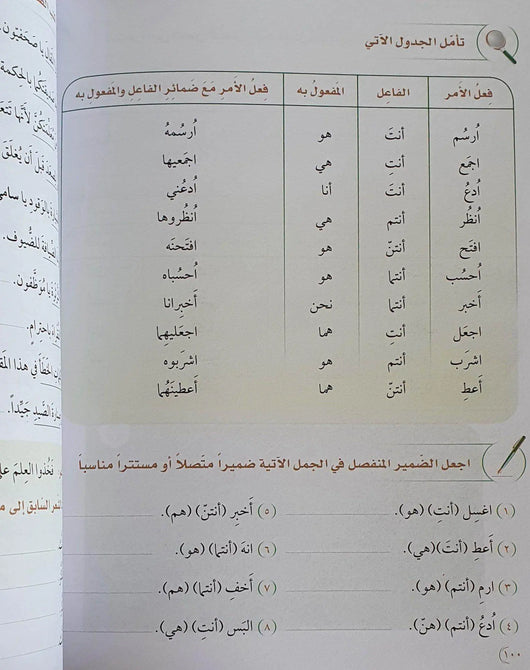 تأمّل الجدول الآتي
فِعلُ الأمر الفاعِل المَفعولُ به فِعلُ الأمرِ مَعَ ضمائِرِ الفاعِلِ والمَفعولِ به
اُرسُم أنتَ هو اُرسُمهُ
اجمَع أنتِ هي اجمَعيها
اُدعُ أنتَ أنا اُدعُني
اُنظُر أنتم هي اُنظُروها
افتَح أنتنّ هو افتَحنَه
اُحسُب أنتما هو اُحسُباه
أَخبر أنتما نحن أَخبِرانا
اجعَل أنتِ هما اجعَليهِما
اشرَب أنتم هو اشرَبوه
أَعطِ أنتنّ هما أَعطينَهُما
اجعل الضّمير المنفصل في الجمل الآتية ضميراً متّصلاً أو مستتراً مناسباً
(١) اغسِل (أنتِ) (هو).
(٥) أَخبِر (أنتنّ) (هم).
(٢) أَعطِ (أنتَ) (هي).
(٦) انهَ (أنتما) (هو).
(٣) ارمِ (أنتم) (هو).
(٧) أَخفِ (أنتما) (هم).
(٤) اُدعُ (أنتم) (هنّ).
(٨) البَس (أنتِ) (هي).
١٠٠
يا صَحَفيّون.
بالحِكمة
لأنّها
قَبلَ أن يُغلَق
بالوَقود يا سامي
للضُّيوف.
يا مُوَظَّفون.
باحتِرامٍ.
الخَطَأ في هذا
الصَّيدِ جَيِّداً.
فَخُذوا العِلمَ على
السّابق إلى